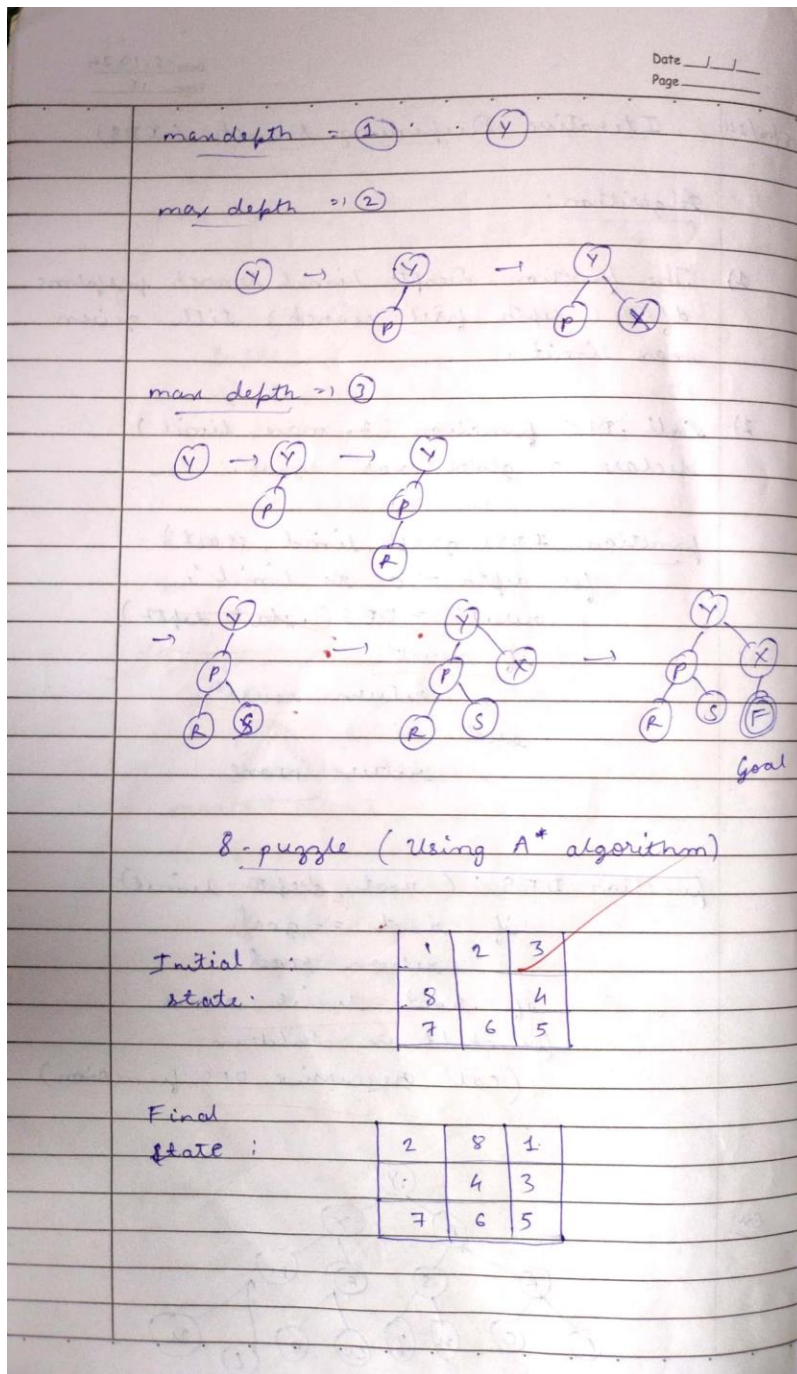 Date __/__/__
Page ____
max depth = 1 Y
max depth => 2
Y → Y → Y
P P X
max depth => 3
Y → Y → Y
P P
R
→ Y → Y → Y
P P X P X
R S R S R S F
Goal
8-puzzle (Using A* algorithm)
Initial : 1 2 3
state. 8 4
7 6 5
Final
state : 2 8 1
4 3
7 6 5